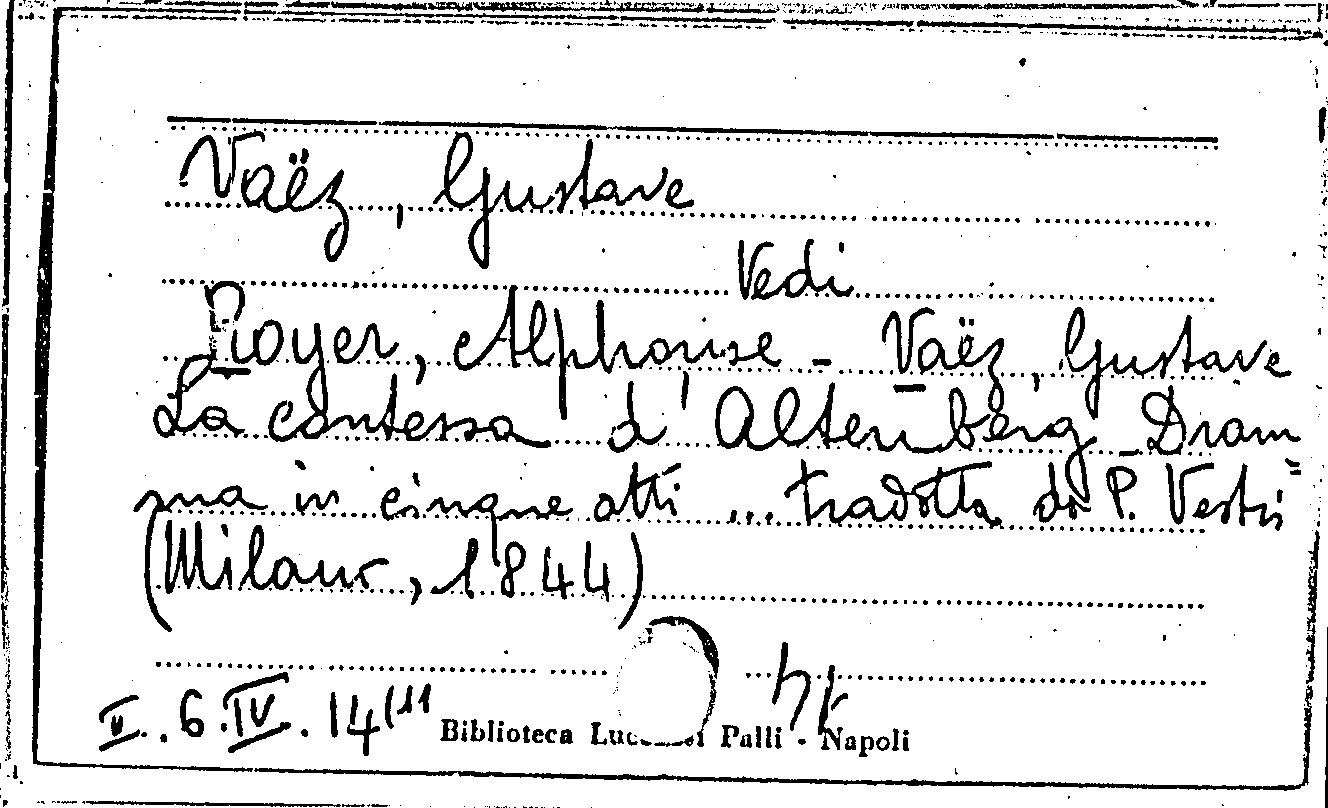 Vaëz, Gustave
Vedi
Royer, Alphonse - Vaëz, Gustave
La contessa d'Altenberg Dram=
ma in cinque atti ... tradotta da P. Vestri
(Milano, 1844)
II. 6. IV. 14 (11
Biblioteca Lucchesi Palli - Napoli